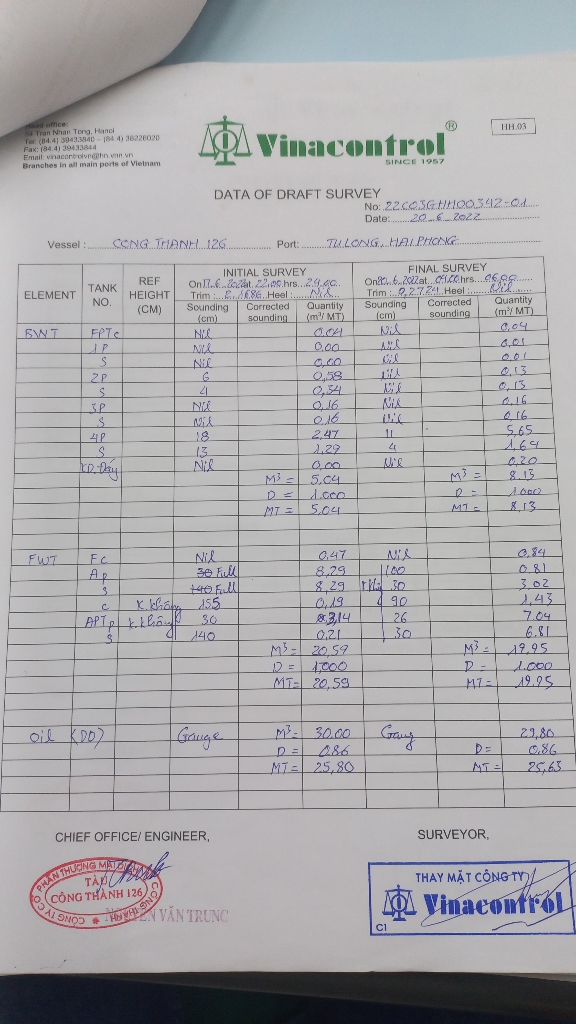 Head office:
54 Tran Nhan Tong, Hanoi
Tel: (84.4) 39433840 – (84.4) 38226020
Fax: (84.4) 39433844
Email: vinacontrolvn@hn.vnn.vn
Branches in all main ports of Vietnam
Vinacontrol®
SINCE 1957
HH.03
DATA OF DRAFT SURVEY
No: 22C03GHH00342-01
Date: 20-6-2022
Vessel : CONG THANH 126 Port: TU LONG, HAI PHONG
ELEMENT TANK NO. REF HEIGHT (CM) INITIAL SURVEY FINAL SURVEY
On 17.6.2022 at 22.00 hrs 24.00 On 20.6.2022 at 04.00 hrs 06.00
Trim : 2,1686 Heel : Nil Trim : 0,2724 Heel : Nil
Sounding (cm) Corrected sounding Quantity (m³/ MT) Sounding (cm) Corrected sounding Quantity (m³/ MT)
BWT FPTc Nil 0,04 Nil 0,04
1P Nil 0,00 Nil 0,01
S Nil 0,00 Nil 0,01
2P 6 0,58 Nil 0,13
S 4 0,34 Nil 0,13
3P Nil 0,16 Nil 0,16
S Nil 0,16 Nil 0,16
4P 18 2,47 11 5,65
S 13 1,29 4 1,64
KD. Đáy Nil 0,00 Nil 0,20
M³ = 5,04 M³ = 8.13
D = 1.000 D = 1.000
MT = 5,04 MT = 8,13
FWT Fc Nil 0,47 Nil 0,84
Ap 30 Full 8,29 100 0.81
S 140 Full 8,29 30 3,02
c K.không 155 0,19 90 1,43
APTp K.không 30 3,14 26 7.04
S 140 0,21 30 6.81
M³ = 20,59 M³ = 19,95
D = 1,000 D = 1.000
MT = 20,59 MT = 19.95
Oil (DO) Gauge M³ = 30.00 Gaug 29,80
D = 0.86 D = 0.86
MT = 25,80 MT = 25,63
CHIEF OFFICE/ ENGINEER, SURVEYOR,
CÔNG TY CỔ PHẦN THƯƠNG MẠI
TÀU
CÔNG THÀNH 126
CÔNG THÀNH
NGUYỄN VĂN TRUNG
THAY MẶT CÔNG TY
Vinacontrol
C1